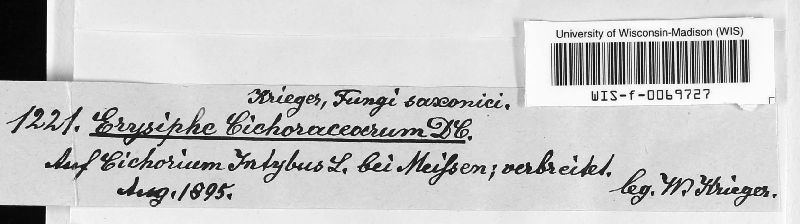 University of Wisconsin-Madison (WIS)
WIS-f-0069727
Krieger, Fungi saxonici.
1221. Erysiphe Cichoracearum DC.
Auf Cichorium Intybus L. bei Meißen; verbreitet.
Aug. 1895. leg. W. Krieger.